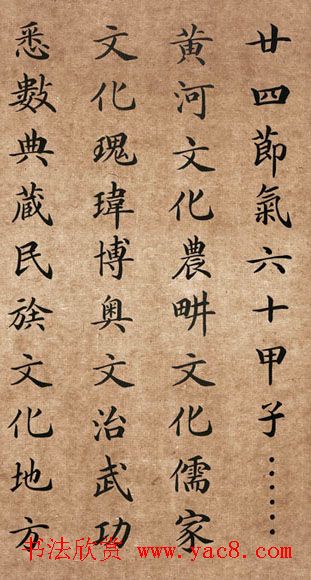 廿四節氣六十甲子……
黄河文化農畊文化儒家
文化瑰瑋博奥文治武功
悉數典蔵民族文化地方
书法欣赏 www.yac8.com